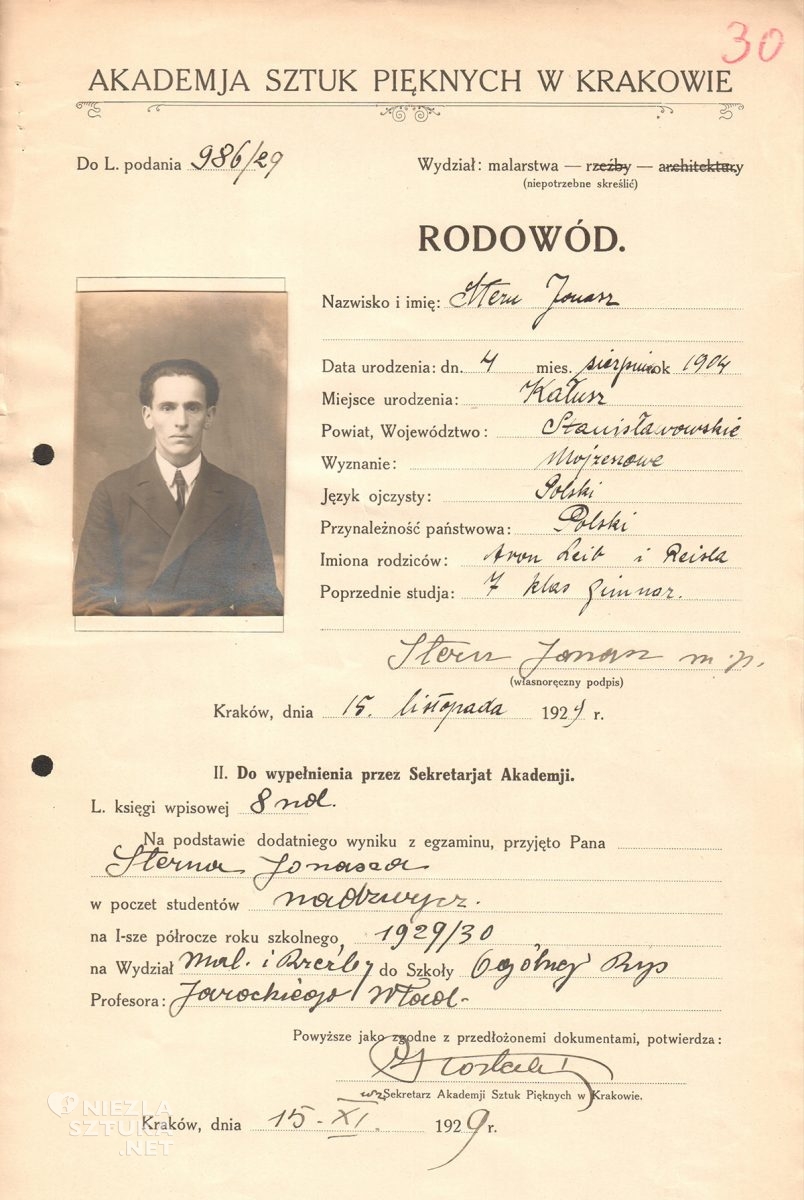 30
AKADEMJA SZTUK PIĘKNYCH W KRAKOWIE
Do L. podania 986/29
Wydział: malarstwa — rzeźby — architektury
(niepotrzebne skreślić)
RODOWÓD.
Nazwisko i imię: Stern Jonasz
Data urodzenia: dn. 4 mies. sierpnia rok 1904
Miejsce urodzenia: Kałusz
Powiat, Województwo: Stanisławowskie
Wyznanie: Mojżeszowe
Język ojczysty: Polski
Przynależność państwowa: Polski
Imiona rodziców: Aron Leib i Reisla
Poprzednie studja: 7 klas gimnaz.
Stern Jonasz m.p.
(własnoręczny podpis)
Kraków, dnia 15. listopada 1929 r.
II. Do wypełnienia przez Sekretarjat Akademji.
L. księgi wpisowej 8 nd.
Na podstawie dodatniego wyniku z egzaminu, przyjęto Pana
Sterna Jonasza
w poczet studentów nadzwycz.
na I-sze półrocze roku szkolnego, 1929/30
na Wydział Mal. i Rzeźby do Szkoły Ogólnej Rys
Profesora: Jarockiego Wład.
Powyższe jako zgodne z przedłożonemi dokumentami, potwierdza:
wz Sekretarz Akademji Sztuk Pięknych w Krakowie.
Kraków, dnia 15. XI. 1929 r.
NIEZŁA
SZTUKA
.NET